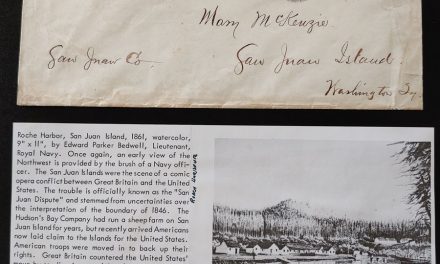 Mary McKenzie
San Juan Co. San Juan Island.
Washington Ty.
Roche Harbor, San Juan Island, 1861, watercolor,
9" x 11", by Edward Parker Bedwell, Lieutenant,
Royal Navy. Once again, an early view of the
Northwest is provided by the brush of a Navy offi-
cer. The San Juan Islands were the scene of a comic
opera conflict between Great Britain and the United
States. The trouble is officially known as the "San
Juan Dispute" and stemmed from uncertainties over
the interpretation of the boundary of 1846. The
Hudson's Bay Company had run a sheep farm on San
Juan Island for years, but recently arrived Americans
now laid claim to the Islands for the United States.
American troops were moved in to back up their
rights. Great Britain countered the United States'